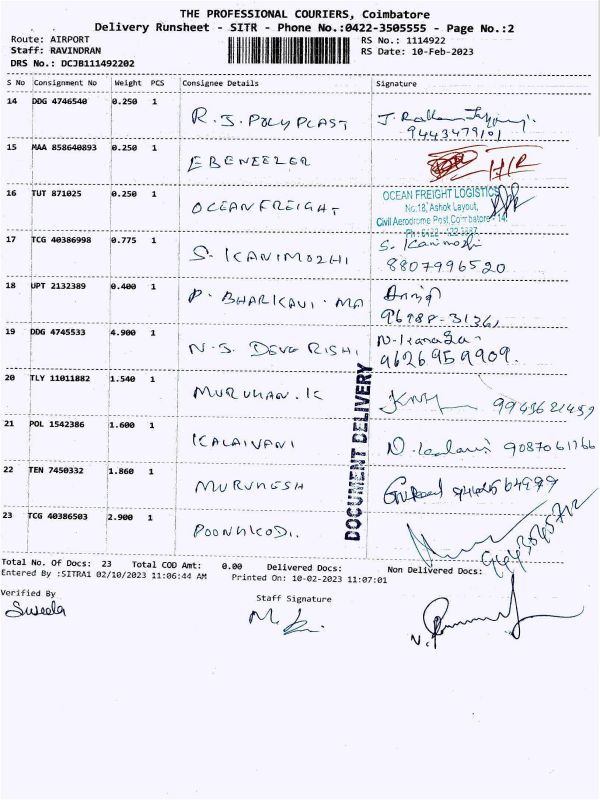 THE PROFESSIONAL COURIERS, Coimbatore
Delivery Runsheet - SITR - Phone No.:0422-3505555 - Page No.:2
Route: AIRPORT
RS No.: 1114922
Staff: RAVINDRAN
RS Date: 10-Feb-2023
DRS No.: DCJB111492202
S No Consignment No Weight PCS Consignee Details Signature
14 DDG 4746540 0.250 1 R.J. POLY PLAST
9443479101
15 MAA 858640893 0.250 1 EBENEEZER
16 TUT 871025 0.250 1 OCEAN FREIGHT
OCEAN FREIGHT LOGISTICS
No.18, Ashok Layout,
Civil Aerodrome Post, Coimbatore - 14.
17 TCG 40386998 0.775 1 S. KANIMOZHI S. Kanimozhi
8807996520
18 UPT 2132389 0.400 1 P. BHARKAVI. MA
96988-31361
19 DDG 4745533 4.900 1 N.S. DEVE RISHI
9626959909.
20 TLY 11011882 1.540 1 MURUHAN.K 9943621459
21 POL 1542386 1.600 1 KALAIVANI 9087061166
22 TEN 7450332 1.860 1 MURUKESH
23 TCG 40386503 2.900 1 POONKKODI.
DOCUMENT DELIVERY
Total No. Of Docs: 23 Total COD Amt: 0.00 Delivered Docs: Non Delivered Docs:
Entered By :SITRA1 02/10/2023 11:06:44 AM Printed On: 10-02-2023 11:07:01
Verified By
Staff Signature